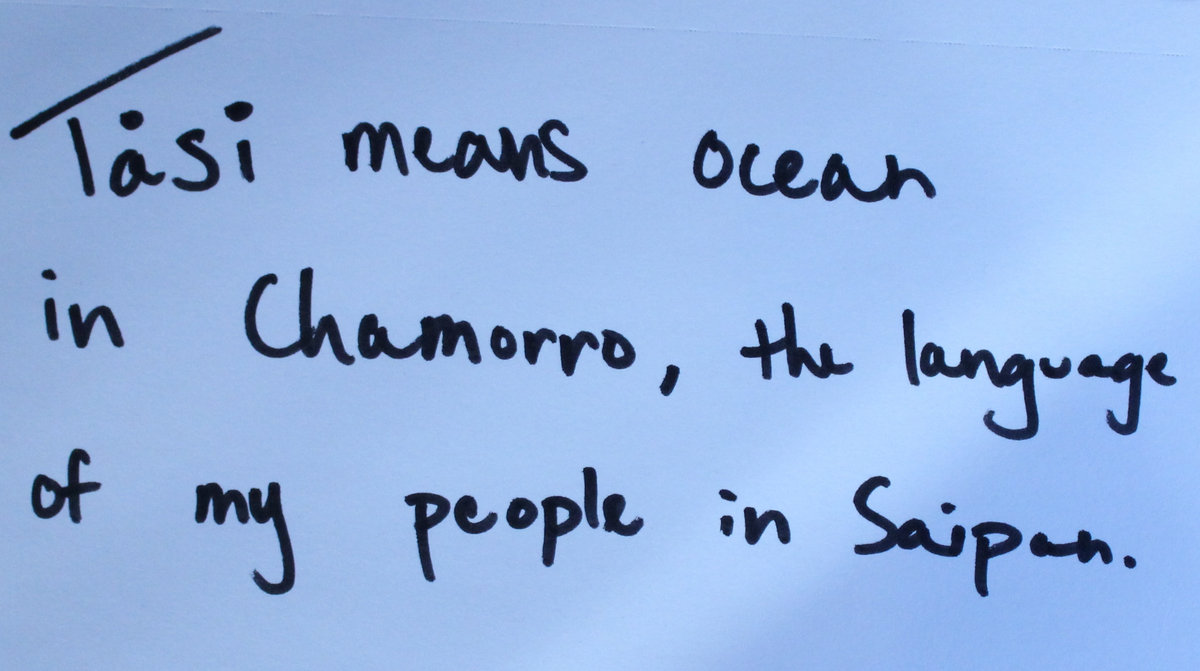 Tåsi means ocean
in Chamorro, the language
of my people in Saipan.